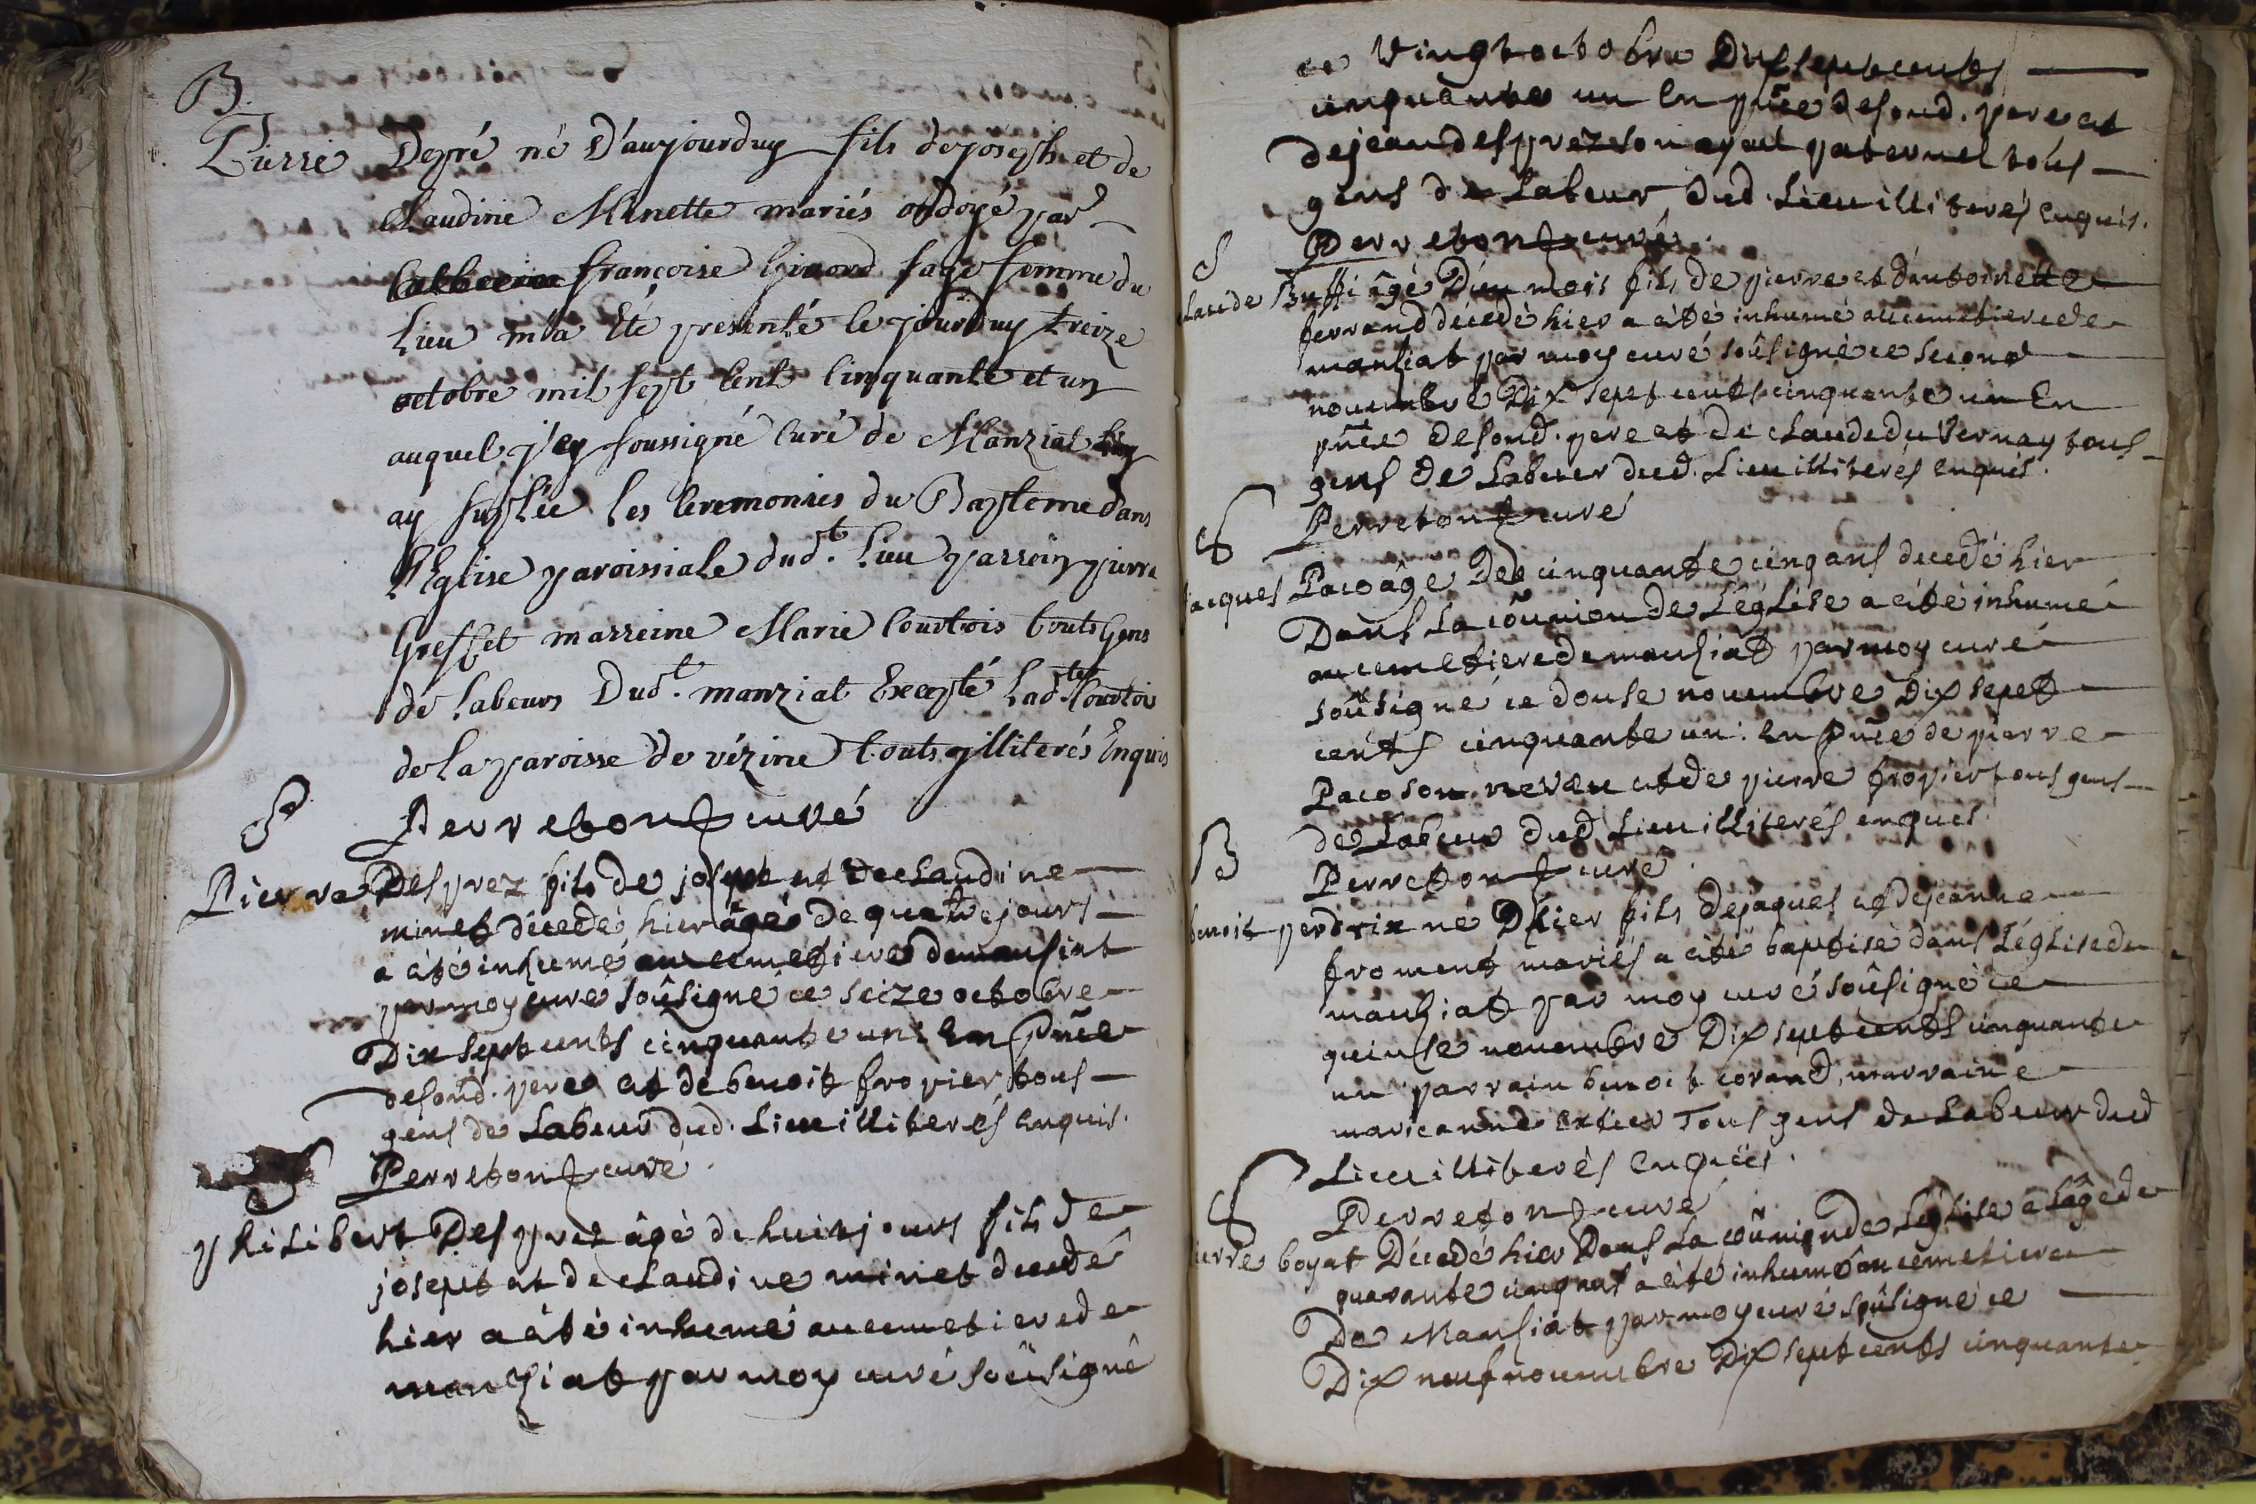 B.
Pierre Depré né D'aujourduy fils de joseph et de
Claudine Minette mariés ondoyé par
françoise Giraord sage femme du
Lieu m'a Eté presenté le jourduy treize
octobre mil sept Cent Cinquante et un
auquel j'ey soussigné Curé de Manziat
ay supléé les Ceremonies du Baptemedans
l'Eglise paroissiale dudt. Lieu parrein pierre
Greffet marreine Marie Courtois touts Gens
de Labeurs Dudt. manziat Excepté Ladte. Courtois
de la paroisse de vézine touts jlliterés Enquis
Perreton curé
S
Pierre Desprez fils de josept et de claudine
minet décedé hier âgé de quatre jours
a été inhumé au cemetiere demanziat
par moy curé soûsigné ce seize octobre
Dix sept cents cinquante un: En pñce
desond. pere et de benoit fropier tous
gens de Labeur dud. Lieu illiterés enquis.
Perreton curé.
S
philibert Desprez âgé de huit jours fils de
josept et de claudine minet decedé
hier a été inhumé au cemetiere de
manziat par moy curé soûsigné
ce vingt octobre Dix sept cents
cinquante un En pñce desond. pere et
de jean desprez son ayeul paternel tous
gens de Labeur dud. Lieu illiterés enquis.
Perreton curé.
S
claude Buffi âgé D'un mois fils de pierre et d'antoinette
ferrand décedé hier a été inhumé au cemetiere de
manziat par moy curé soûsigné ce second
novembre Dix sept cents cinquante un En
pñce desond. pere et de claude du Vernay tous
gens de Labeur dud. Lieu illiterés enquis.
Perreton curé
S
jacques Paco âgé De cinquante cinq ans decedé hier
Dans la coñunion de L'église a été inhumé
au cemetiere de manziat par moy curé
soûsigné ce douse novembre Dix sept
cents cinquante un: En pñce de pierre
Paco son neveu et de pierre fropier tous gens
de Labeur dud. Lieu illiterés enquis.
Perreton curé.
B
benoit perdrix né D'hier fils de jaques et de jeanne
froment mariés a été baptisé dans L'église de
manziat par moy curé soûsigné ce
quinse novembre Dix sept cents cinquante
un parrain benoit corand, marraine
marie anne Tous gens de Labeur dud
Lieu illiterés Enquis.
Perreton curé
S
pierre boyat Décedé hier Dans La coñunion de L'église a L'âge de
quarante cinq ans a été inhumé au cemetiere
De Manziat par moy curé soûsigné ce
Dix neuf novembre Dix sept cents cinquante